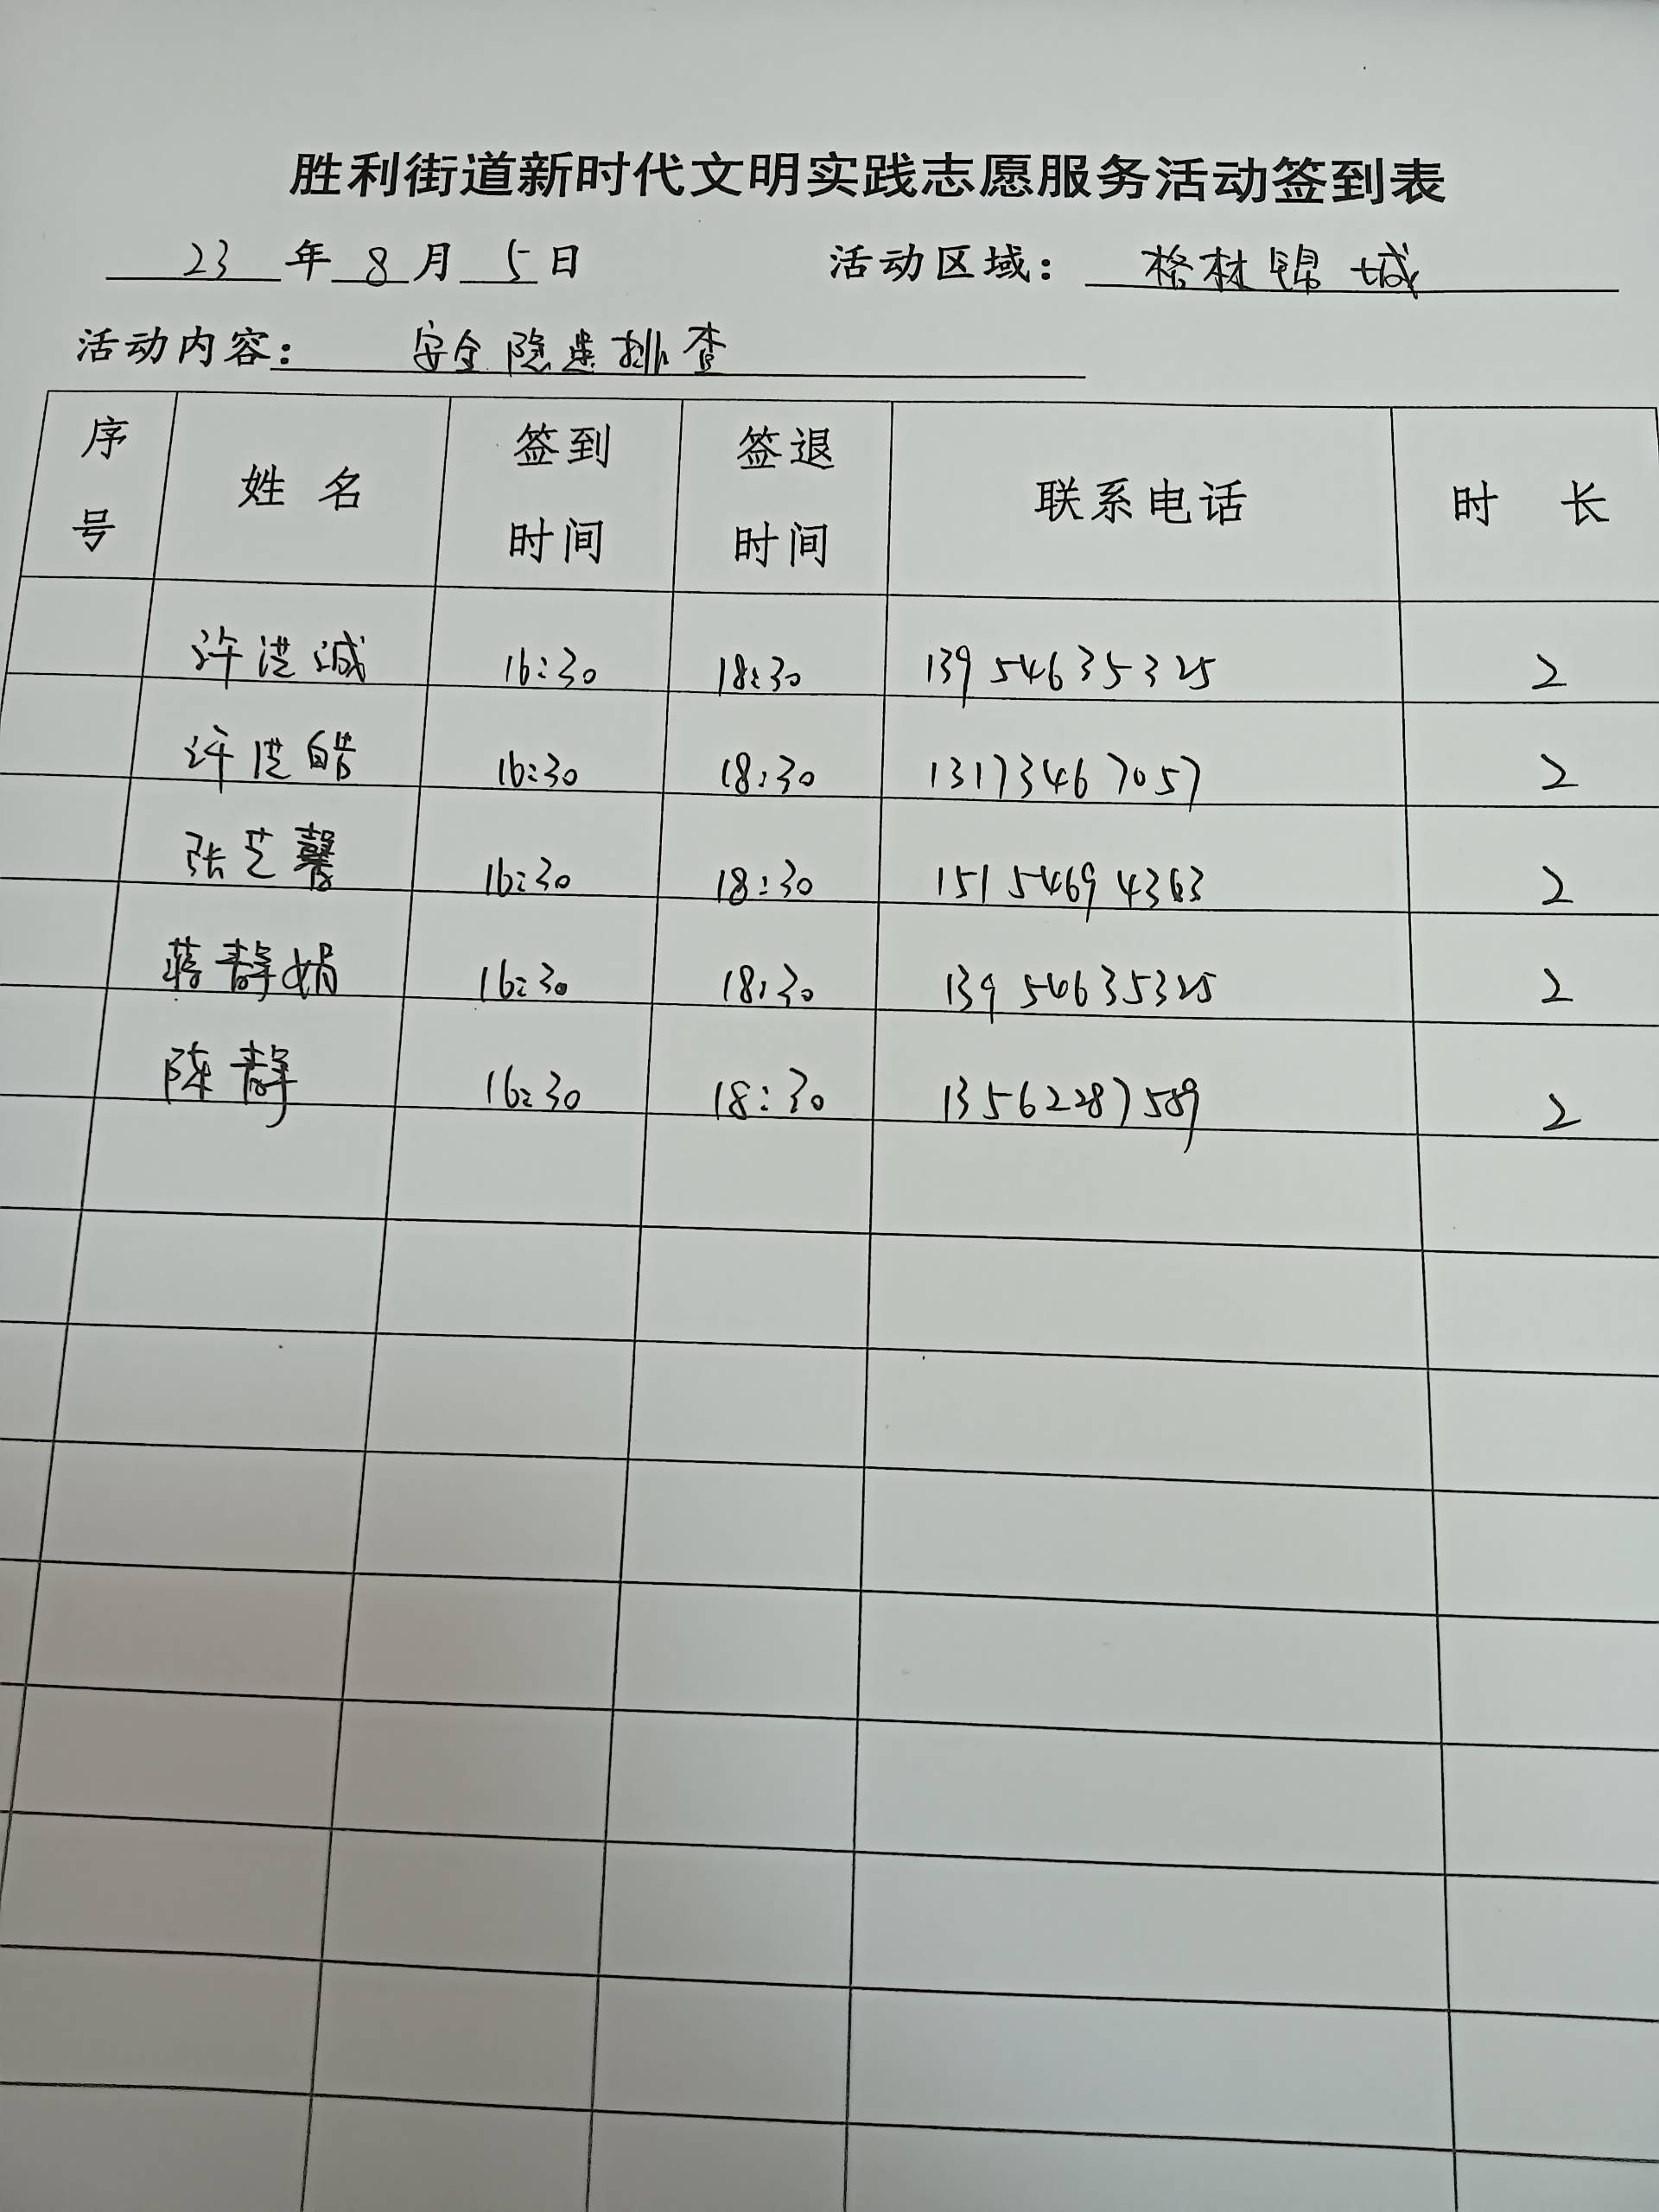 胜利街道新时代文明实践志愿服务活动签到表
23 年 8 月 5 日 活动区域: 格林锦城
活动内容: 安全隐患排查
序号 姓名 签到时间 签退时间 联系电话 时长
许洪诚 16:30 18:30 13954635325 2
许洪皓 16:30 18:30 13173467057 2
张艺馨 16:30 18:30 15154694363 2
蒋静娟 16:30 18:30 13954635325 2
陈静 16:30 18:30 13562287589 2